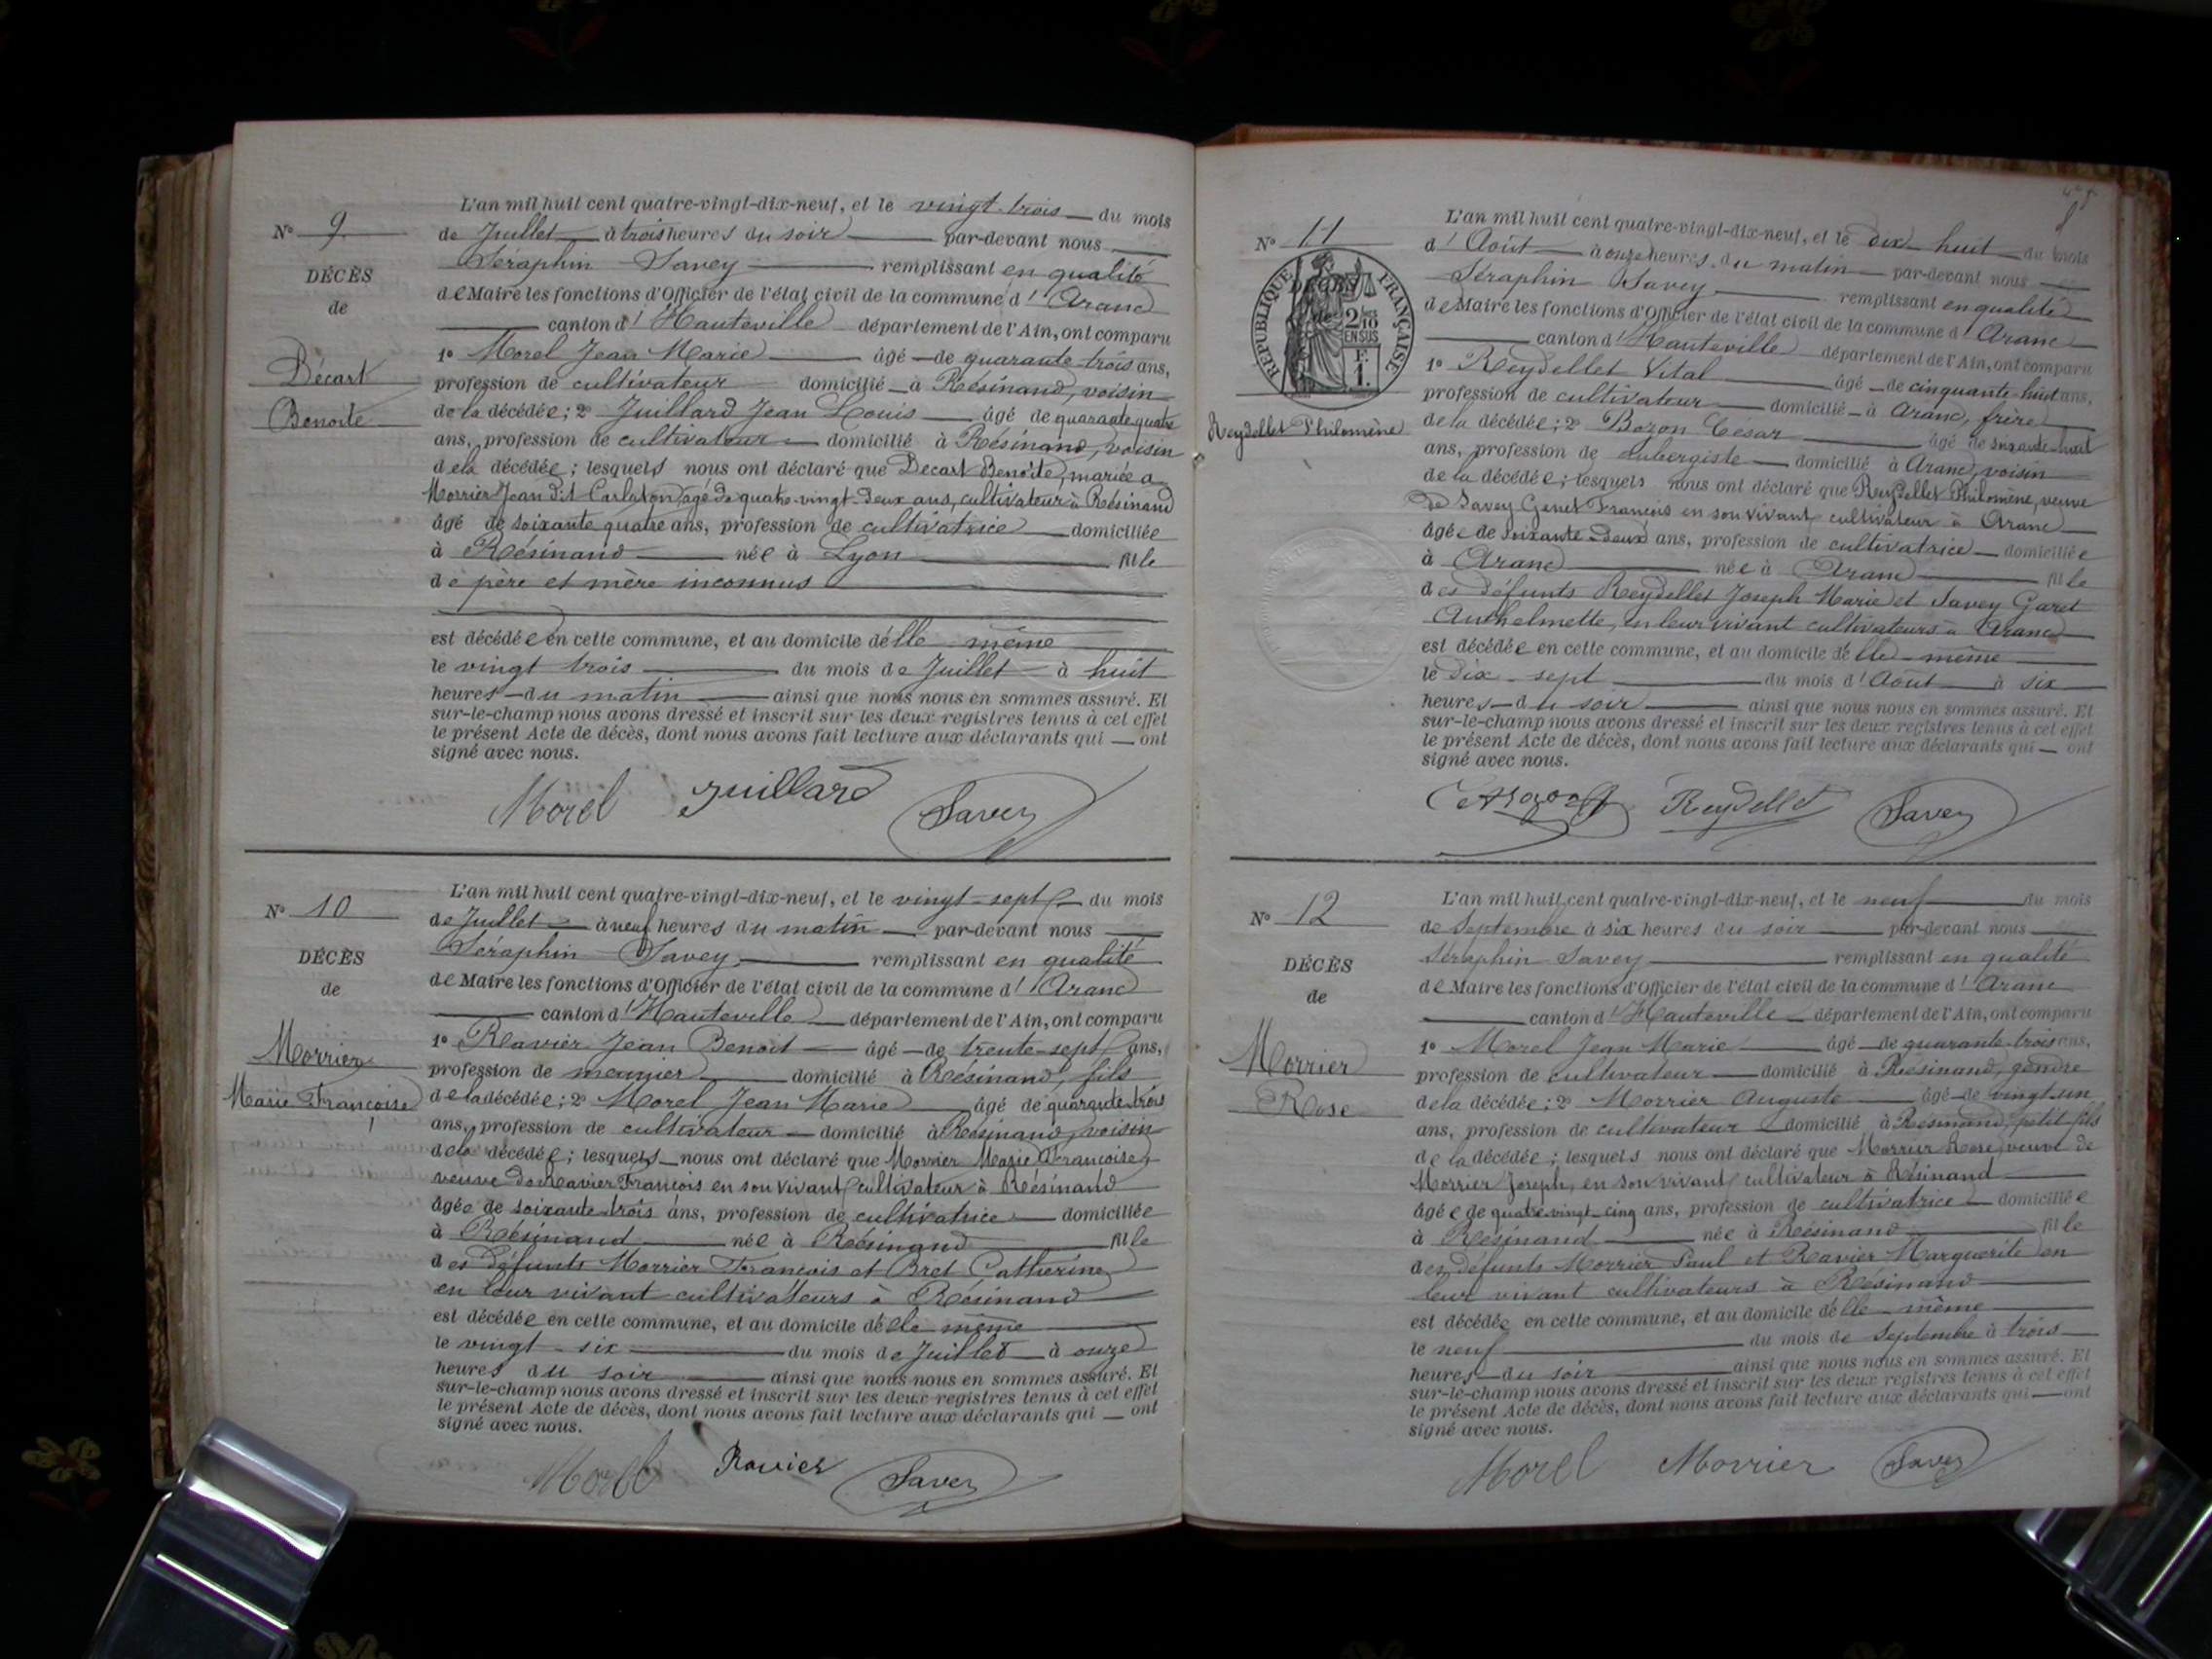 N° 9
DÉCÈS
de
Décart
Benoite
L'an mil huit cent quatre-vingt-dix-neuf, et le vingt-trois du mois
de Juillet à trois heures du soir par-devant nous
Séraphin Savey remplissant en qualité
de Maire les fonctions d'Officier de l'état civil de la commune d'Aranc
canton d'Hauteville département de l'Ain, ont comparu
1° Morel Jean Marie âgé de quarante-trois ans,
profession de cultivateur domicilié à Résinand, voisin
de la décédée; 2° Juillard Jean Louis âgé de quarante quatre
ans, profession de cultivateur domicilié à Résinand, voisin
de la décédée; lesquels nous ont déclaré que Décart Benoite, mariée a
Morrier Jean dit Carlaton âgé de quatre-vingt-deux ans, cultivateur à Résinand
âgé de soixante quatre ans, profession de cultivatrice domiciliée
à Résinand née à Lyon fille
de père et mère inconnus
est décédée en cette commune, et au domicile d'elle-même
le vingt trois du mois de Juillet à huit
heures du matin ainsi que nous nous en sommes assuré. Et
sur-le-champ nous avons dressé et inscrit sur les deux registres tenus à cet effet
le présent Acte de décès, dont nous avons fait lecture aux déclarants qui ont
signé avec nous.
Morel Juillard Savey
N° 10
DÉCÈS
de
Morrier
Marie Françoise
L'an mil huit cent quatre-vingt-dix-neuf, et le vingt-sept du mois
de Juillet à neuf heures du matin par-devant nous
Séraphin Savey remplissant en qualité
de Maire les fonctions d'Officier de l'état civil de la commune d'Aranc
canton d'Hauteville département de l'Ain, ont comparu
1° Ravier Jean Benoit âgé de trente-sept ans,
profession de meunier domicilié à Résinand, fils
de la décédée; 2° Morel Jean Marie âgé de quarante-trois
ans, profession de cultivateur domicilié à Résinand, voisin
de la décédée; lesquels nous ont déclaré que Morrier Marie Françoise,
veuve de Ravier François en son vivant cultivateur à Résinand
âgée de soixante-trois ans, profession de cultivatrice domiciliée
à Résinand née à Résinand fille
des défunts Morrier François et Bret Catherine
en leur vivant cultivateurs à Résinand
est décédée en cette commune, et au domicile d'elle même
le vingt-six du mois de Juillet à onze
heures du soir ainsi que nous nous en sommes assuré. Et
sur-le-champ nous avons dressé et inscrit sur les deux registres tenus à cet effet
le présent Acte de décès, dont nous avons fait lecture aux déclarants qui ont
signé avec nous.
Morel Ravier Savey
N° 11
DÉCÈS
de
RÉPUBLIQUE FRANÇAISE
2/10
EN SUS
F.
1.
Reydellet Philomène
L'an mil huit cent quatre-vingt-dix-neuf, et le dix-huit du mois
d'Août à onze heures du matin par-devant nous
Séraphin Savey remplissant en qualité
de Maire les fonctions d'Officier de l'état civil de la commune d'Aranc
canton d'Hauteville département de l'Ain, ont comparu
1° Reydellet Vital âgé de cinquante-huit ans,
profession de cultivateur domicilié à Aranc, frère
de la décédée; 2° Bozon Cesar âgé de soixante-huit
ans, profession de aubergiste domicilié à Aranc, voisin
de la décédée; lesquels nous ont déclaré que Reydellet Philomène, veuve
de Savey Genet François en son vivant cultivateur à Aranc
âgée de soixante-deux ans, profession de cultivatrice domiciliée
à Aranc née à Aranc fille
des défunts Reydellet Joseph Marie et Savey Garet
Anthelmette, en leur vivant cultivateurs à Aranc
est décédée en cette commune, et au domicile d'elle-même
le dix-sept du mois d'Août à six
heures du soir ainsi que nous nous en sommes assuré. Et
sur-le-champ nous avons dressé et inscrit sur les deux registres tenus à cet effet
le présent Acte de décès, dont nous avons fait lecture aux déclarants qui ont
signé avec nous.
Reydellet Savey
N° 12
DÉCÈS
de
Morrier
Rose
L'an mil huit cent quatre-vingt-dix-neuf, et le neuf du mois
de Septembre à six heures du soir par-devant nous
Séraphin Savey remplissant en qualité
de Maire les fonctions d'Officier de l'état civil de la commune d'Aranc
canton d'Hauteville département de l'Ain, ont comparu
1° Morel Jean Marie âgé de quarante-trois ans,
profession de cultivateur domicilié à Résinand, gendre
de la décédée; 2° Morrier Auguste âgé de vingt-un
ans, profession de cultivateur domicilié à Résinand, petit-fils
de la décédée; lesquels nous ont déclaré que Morrier Rose, veuve de
Morrier Joseph, en son vivant cultivateur à Résinand
âgée de quatre-vingt-cinq ans, profession de cultivatrice domiciliée
à Résinand née à Résinand fille
des défunts Morrier Paul et Ravier Marguerite en
leur vivant cultivateurs à Résinand
est décédée en cette commune, et au domicile d'elle-même
le neuf du mois de Septembre à trois
heures du soir ainsi que nous nous en sommes assuré. Et
sur-le-champ nous avons dressé et inscrit sur les deux registres tenus à cet effet
le présent Acte de décès, dont nous avons fait lecture aux déclarants qui ont
signé avec nous.
Morel Morrier Savey